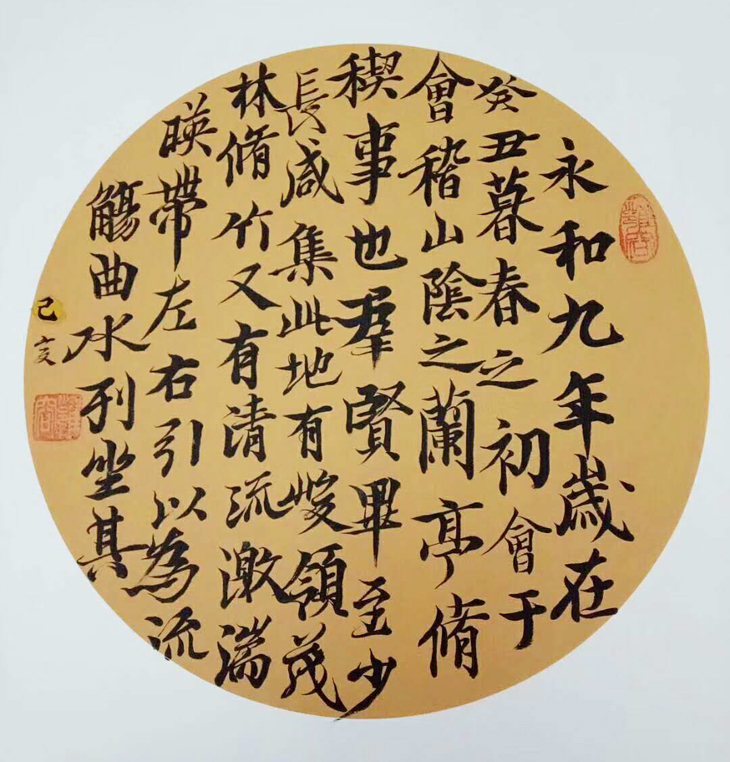 永和九年歲在
癸丑暮春之初會于
會稽山陰之蘭亭脩
稧事也羣賢畢至少
長咸集此地有峻領茂
林脩竹又有清流激湍
暎帶左右引以為流
觴曲水列坐其
己亥